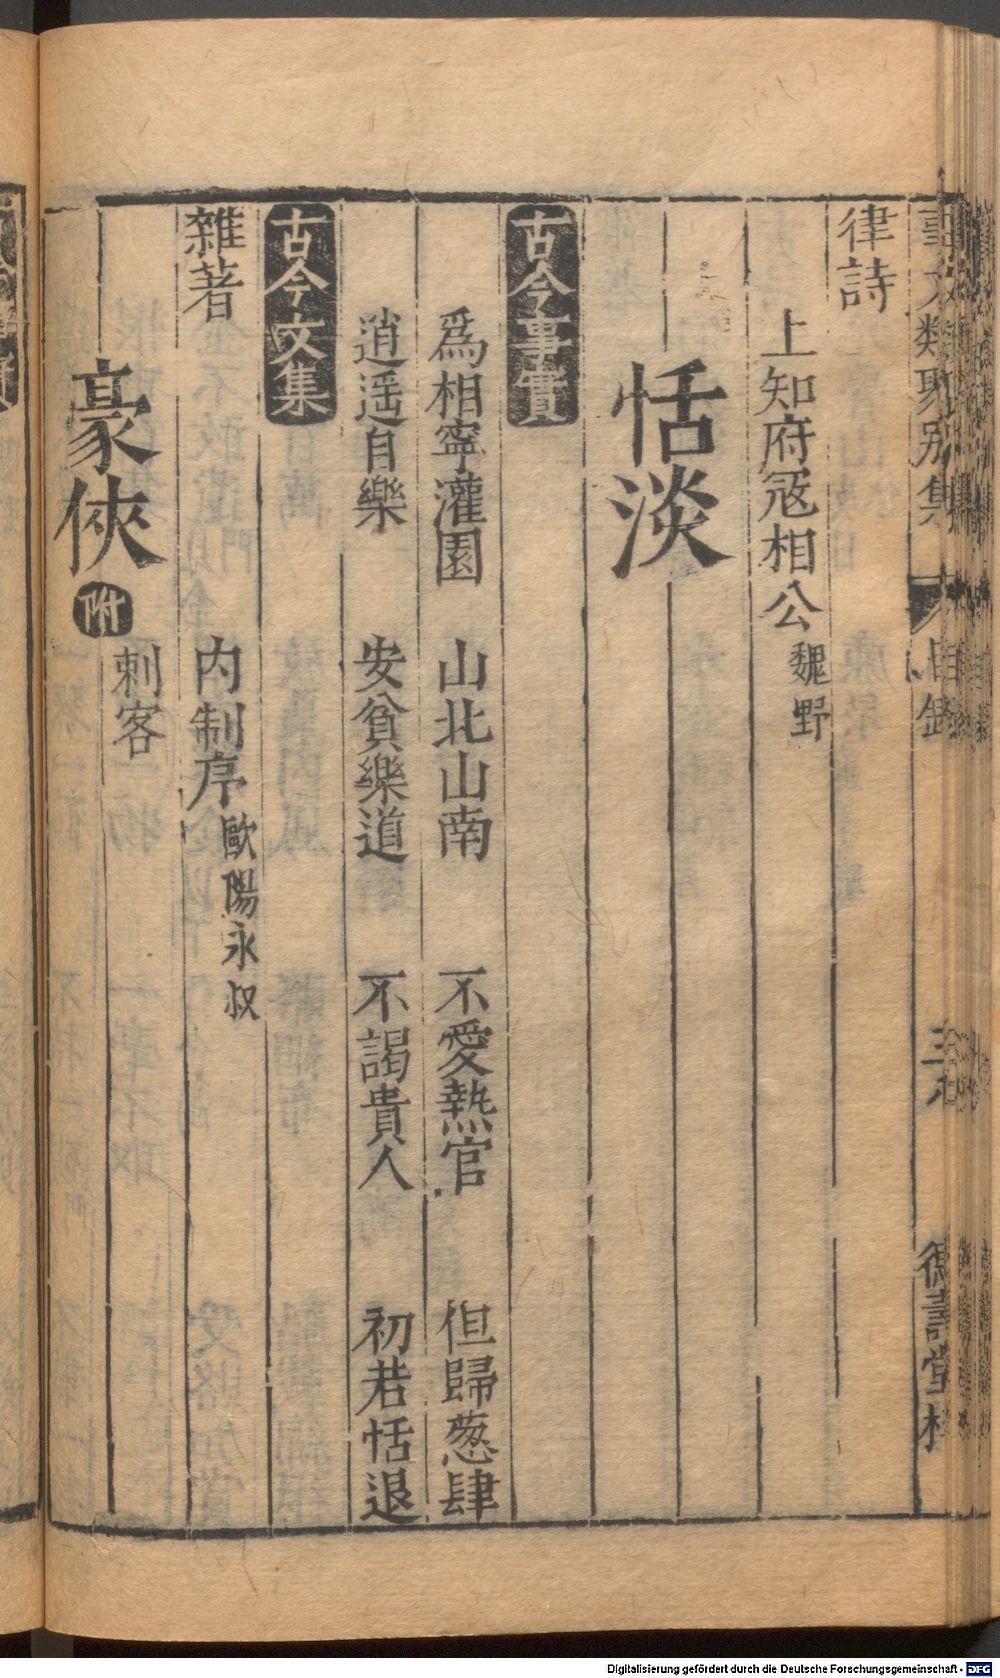 事文類聚别集 目錄 德壽堂梓
律詩
上知府冦相公 魏野
恬淡
古今事實
爲相寧灌園 山北山南 不愛熱官 但歸葱肆
逍遥自樂 安貧樂道 不謁貴人 初若恬退
古今文集
雜著
内制序 歐陽永叔
豪俠 附 刺客
Digitalisierung gefördert durch die Deutsche Forschungsgemeinschaft - DFG